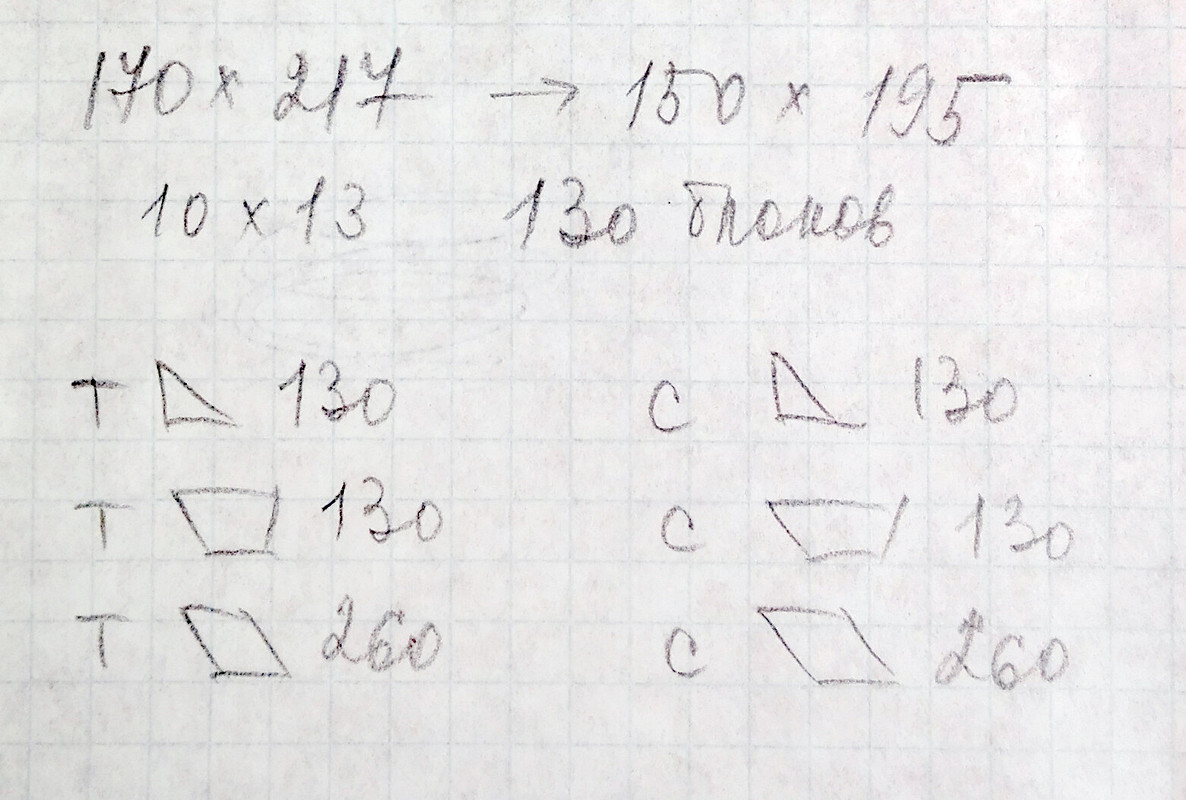 170 x 217 → 150 x 195
10 x 13 130 блоков
Т 130 С 130
Т 130 С 130
Т 260 С 260